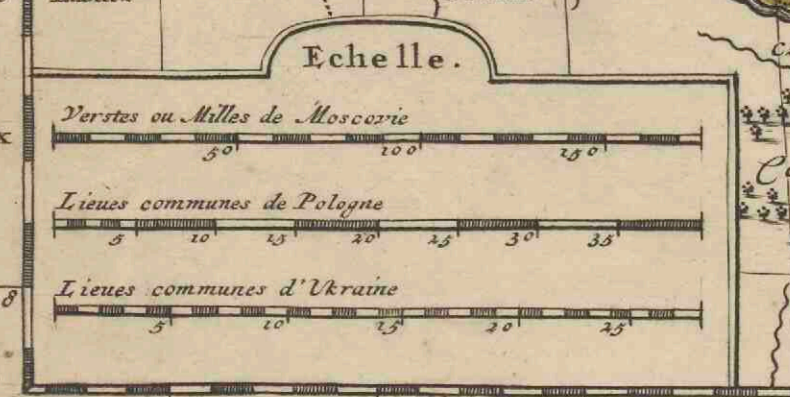 Echelle.
Verstes ou Milles de Moscovie
50 100 150
Lieues communes de Pologne
5 10 15 20 25 30 35
Lieues communes d'Ukraine
5 10 15 20 25
8